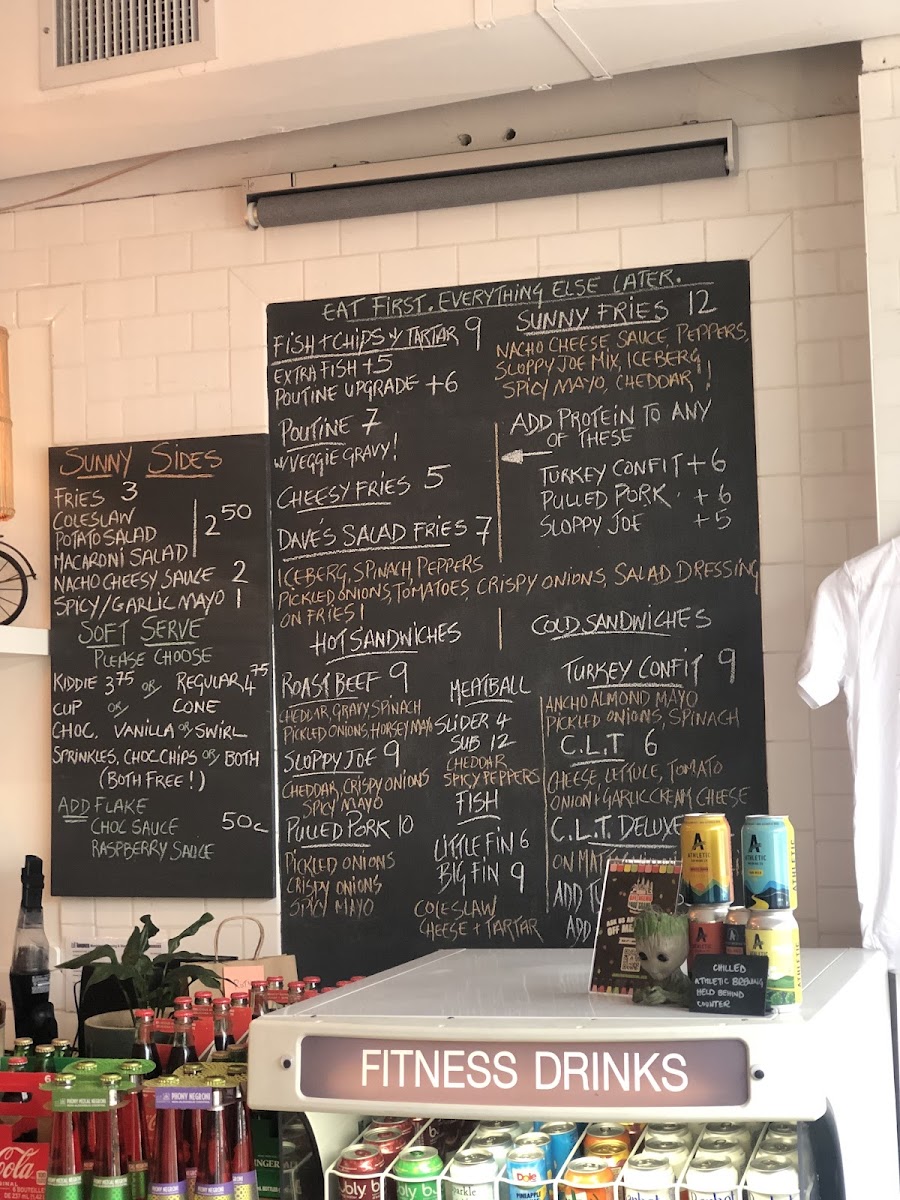 EAT FIRST. EVERYTHING ELSE LATER.
FISH + CHIPS W/ TARTAR 9
EXTRA FISH +5
POUTINE UPGRADE +6
POUTINE 7
W/VEGGIE GRAVY!
CHEESY FRIES 5
DAVE'S SALAD FRIES 7
ICEBERG, SPINACH PEPPERS
PICKLED ONIONS, TOMATOES, CRISPY ONIONS, SALAD DRESSING
ON FRIES!
SUNNY FRIES 12
NACHO CHEESE SAUCE, PEPPERS,
SLOPPY JOE MIX, ICEBERG,
SPICY MAYO, CHEDDAR!
ADD PROTEIN TO ANY
OF THESE
TURKEY CONFIT +6
PULLED PORK +6
SLOPPY JOE +5
HOT SANDWICHES
ROAST BEEF 9
CHEDDAR, GRAVY, SPINACH
PICKLED ONIONS, HORSEY MAYO
SLOPPY JOE 9
CHEDDAR, CRISPY ONIONS
SPICY MAYO
PULLED PORK 10
PICKLED ONIONS
CRISPY ONIONS
SPICY MAYO
MEATBALL
SLIDER 4
SUB 12
CHEDDAR
SPICY PEPPERS
FISH
LITTLE FIN 6
BIG FIN 9
COLESLAW
CHEESE + TARTAR
COLD SANDWICHES
TURKEY CONFIT 9
ANCHO ALMOND MAYO
PICKLED ONIONS, SPINACH
C.L.T 6
CHEESE, LETTUCE, TOMATO
ONION + GARLIC CREAM CHEESE
C.L.T. DELUXE
ON
ADD
ADD
SUNNY SIDES
FRIES 3
COLESLAW
POTATO SALAD
MACARONI SALAD
2 50
NACHO CHEESY SAUCE 2
SPICY/GARLIC MAYO 1
SOFT SERVE
PLEASE CHOOSE
KIDDIE 3 75 OR REGULAR 4 75
CUP OR CONE
CHOC, VANILLA OR SWIRL
SPRINKLES, CHOC CHIPS OR BOTH
(BOTH FREE!)
ADD FLAKE
CHOC SAUCE
RASPBERRY SAUCE
50c
A
ATHLETIC
BREWING CO
A
ATHLETIC
ATHLETIC
CHILLED
ATHLETIC BREWING
HELD BEHIND
COUNTER
FITNESS DRINKS
PHONY MEZCAL NEGRONI
PHONY NEGRONI
Cola
bubly
Dole
PINEAPPLE